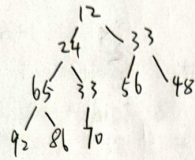 12
24 33
65 33 56 48
92 86 70